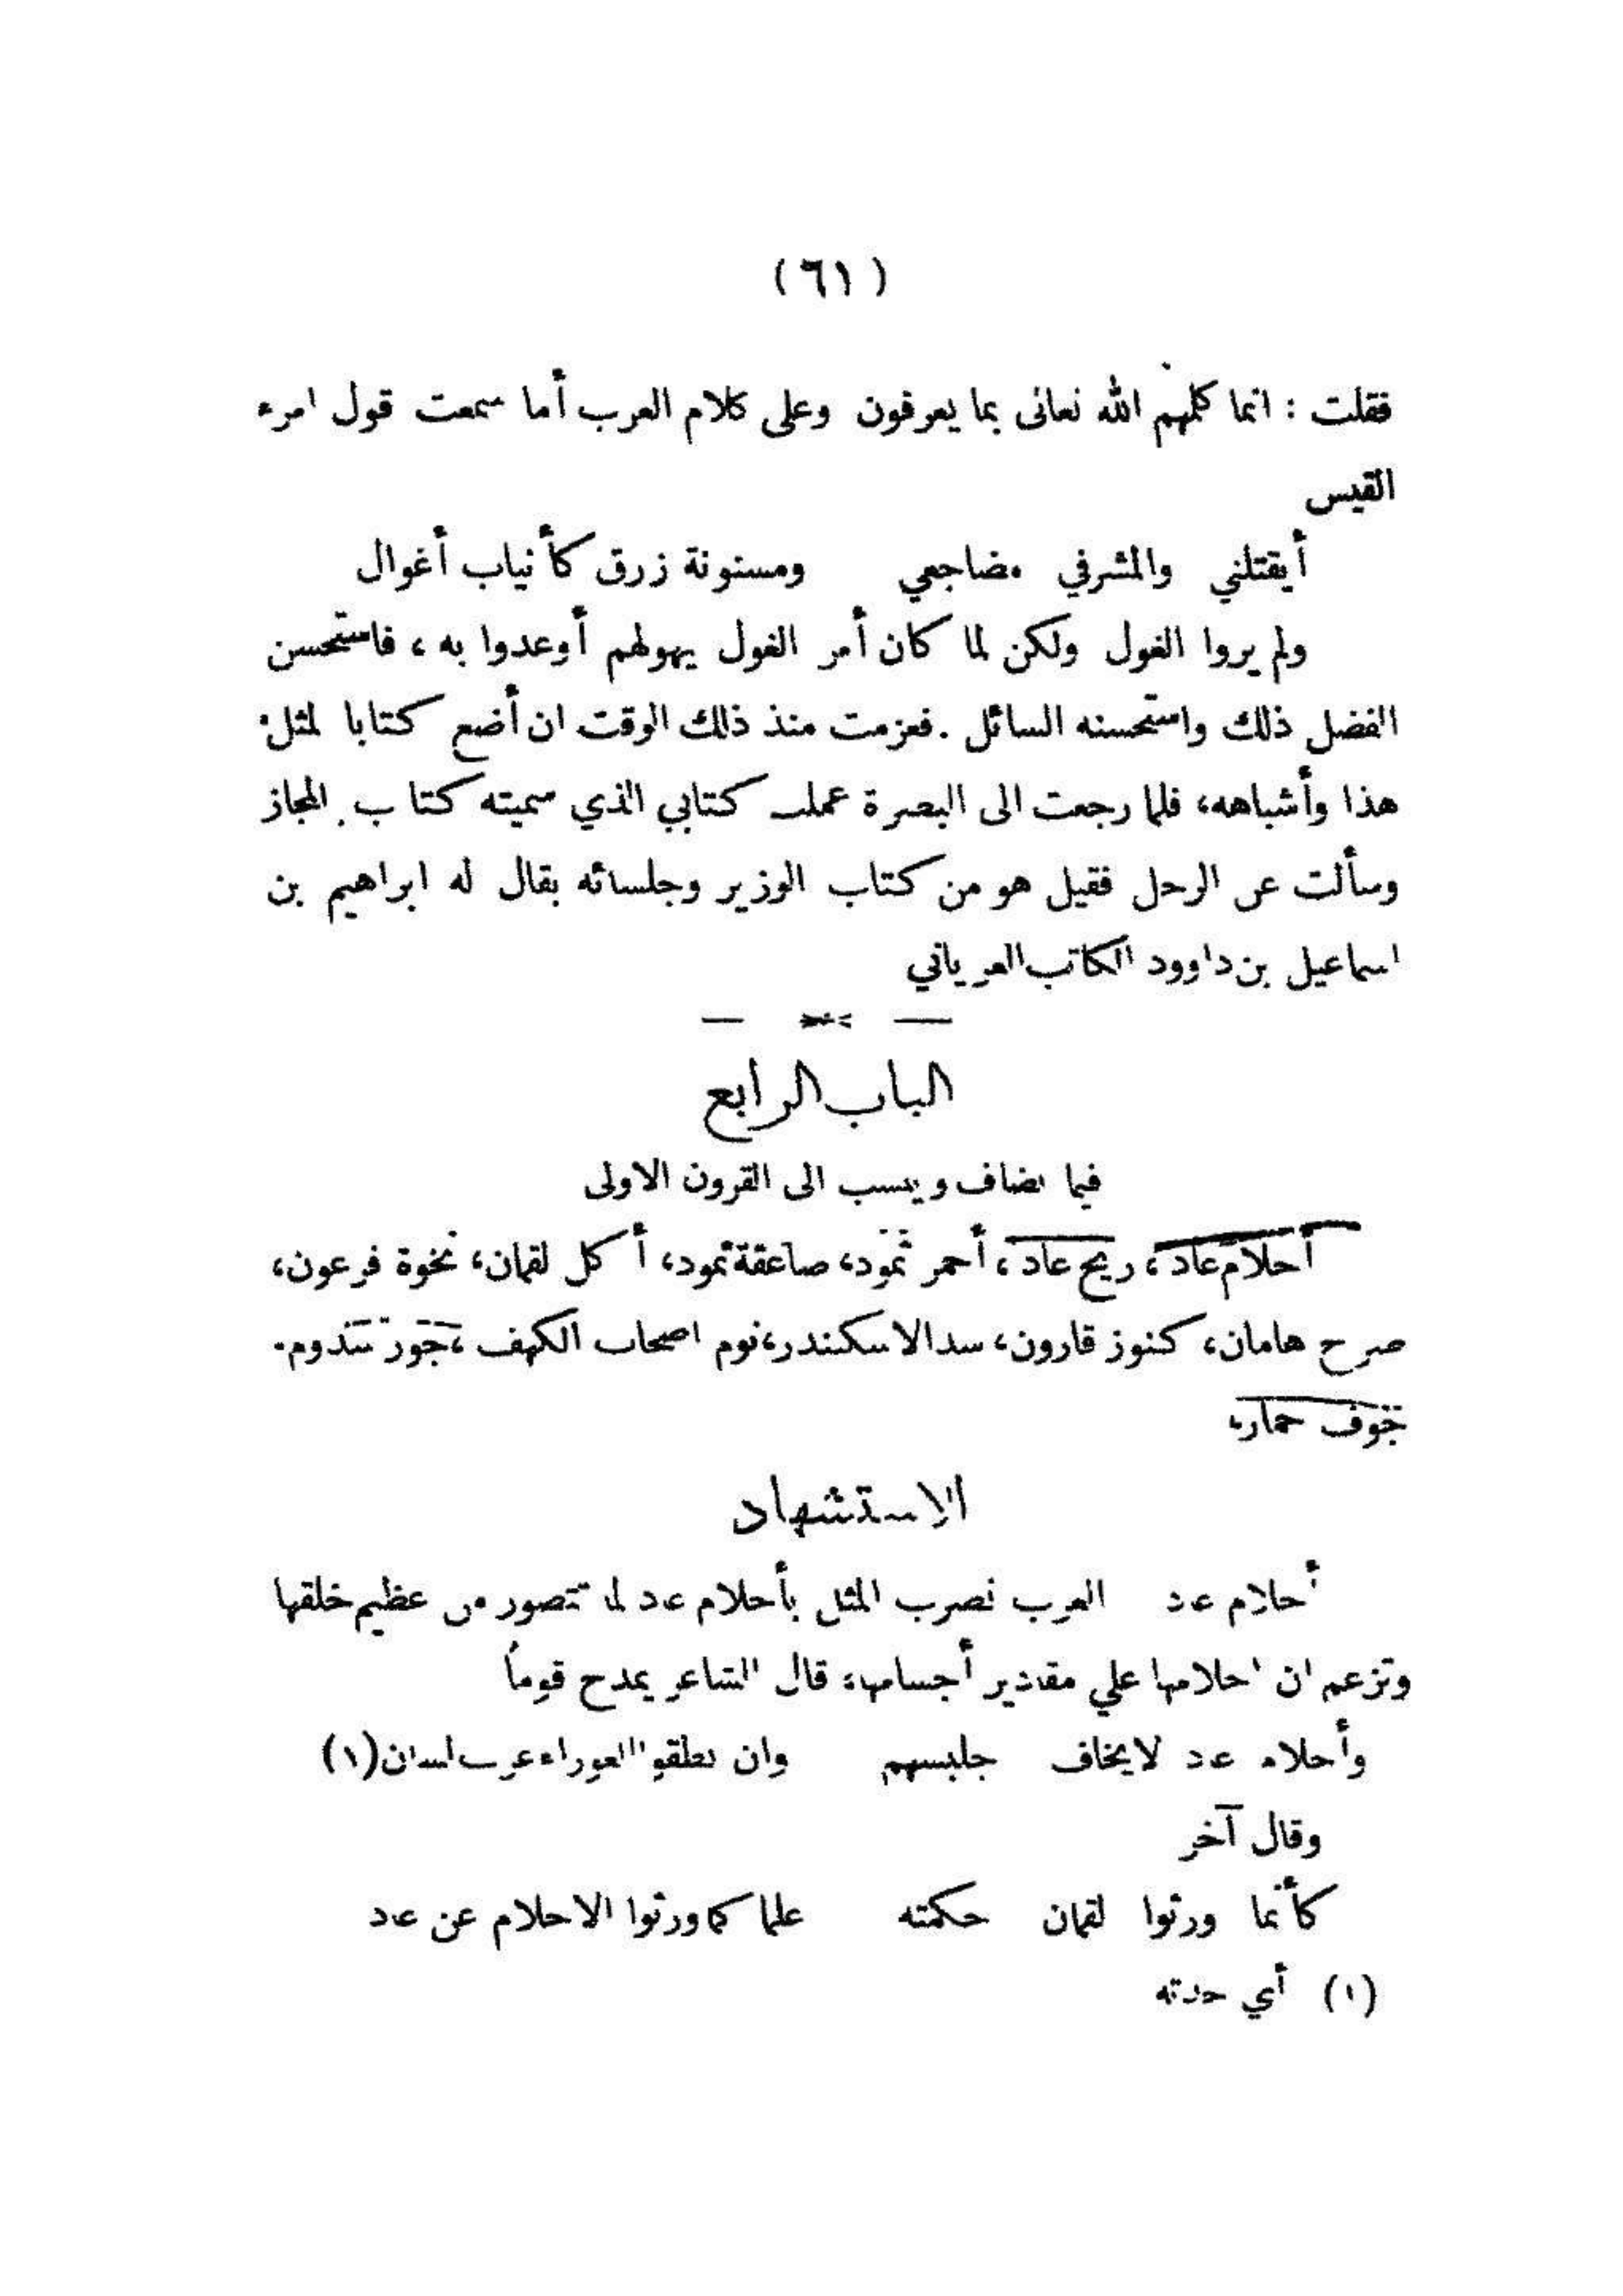 (٦١)
فقلت : انما كلمهم الله تعالى بما يعرفون وعلى كلام العرب أما سمعت قول امرء
القيس
أيقتلني والمشرفي مضاجعي ومسنونة زرق كأنياب أغوال
ولم يروا الغول ولكن لما كان أمر الغول يهولهم أوعدوا به ، فاستحسن
الفضل ذلك واستحسنه السائل . فعزمت منذ ذلك الوقت ان أضع كتابا لمثل
هذا وأشباهه، فلما رجعت الى البصرة عملت كتابي الذي سميته كتاب المجاز
وسألت عن الرجل فقيل هو من كتاب الوزير وجلسائه يقال له ابراهيم بن
اسماعيل بن داوود الكاتب
الباب الرابع
فيما يضاف وينسب الى القرون الاولى
أحلام عاد، ريح عاد، أحمر ثمود، صاعقة ثمود، أكل لقمان، نخوة فرعون،
صرح هامان، كنوز قارون، سد الاسكندر، نوم اصحاب الكهف، جور سدوم.
جوف حمار،
الاستشهاد
أحلام عاد العرب تضرب المثل بأحلام عاد لما تتصور من عظيم خلقها
وتزعم ان احلامها علي مقادير أجسامها، قال الشاعر يمدح قوماً
وأحلام عاد لا يخاف جليسهم وان نطقوا العوراء غرب لسان (١)
وقال آخر
كأنما ورثوا لقمان حكمته علما كما ورثوا الاحلام عن عاد
(١) أي حدته